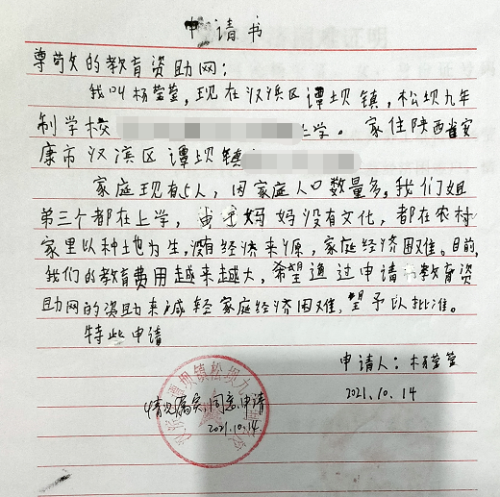 申请书
尊敬的教育资助网:
我叫杨莹莹,现在汉滨区谭坝镇,松坝九年
制学校 上学。家住陕西省安
康市汉滨区谭坝镇
家庭现有5人,因家庭人口数量多,我们姐
弟三个都在上学,爸妈没有文化,都在农村
家里以种土地为生,没有经济来源,家庭经济困难。目前,
我们的教育费用越来越大,希望通过申请 教育资
助网的资助来减轻家庭经济困难,望予以批准。
特此申请
申请人:杨莹莹
2021.10.14
情况属实,同意申请
2021.10.14
谭坝镇松坝九